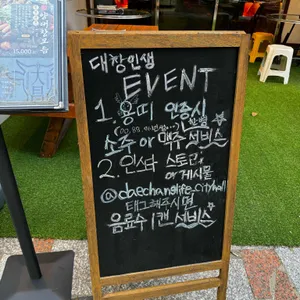 대창인생
EVENT
1. 용띠 인증시
소주 or 맥주 서비스
2. 인스타 스토리
or 게시물
@daechanglife_cityhall
태그해주시면
음료수 1캔 서비스